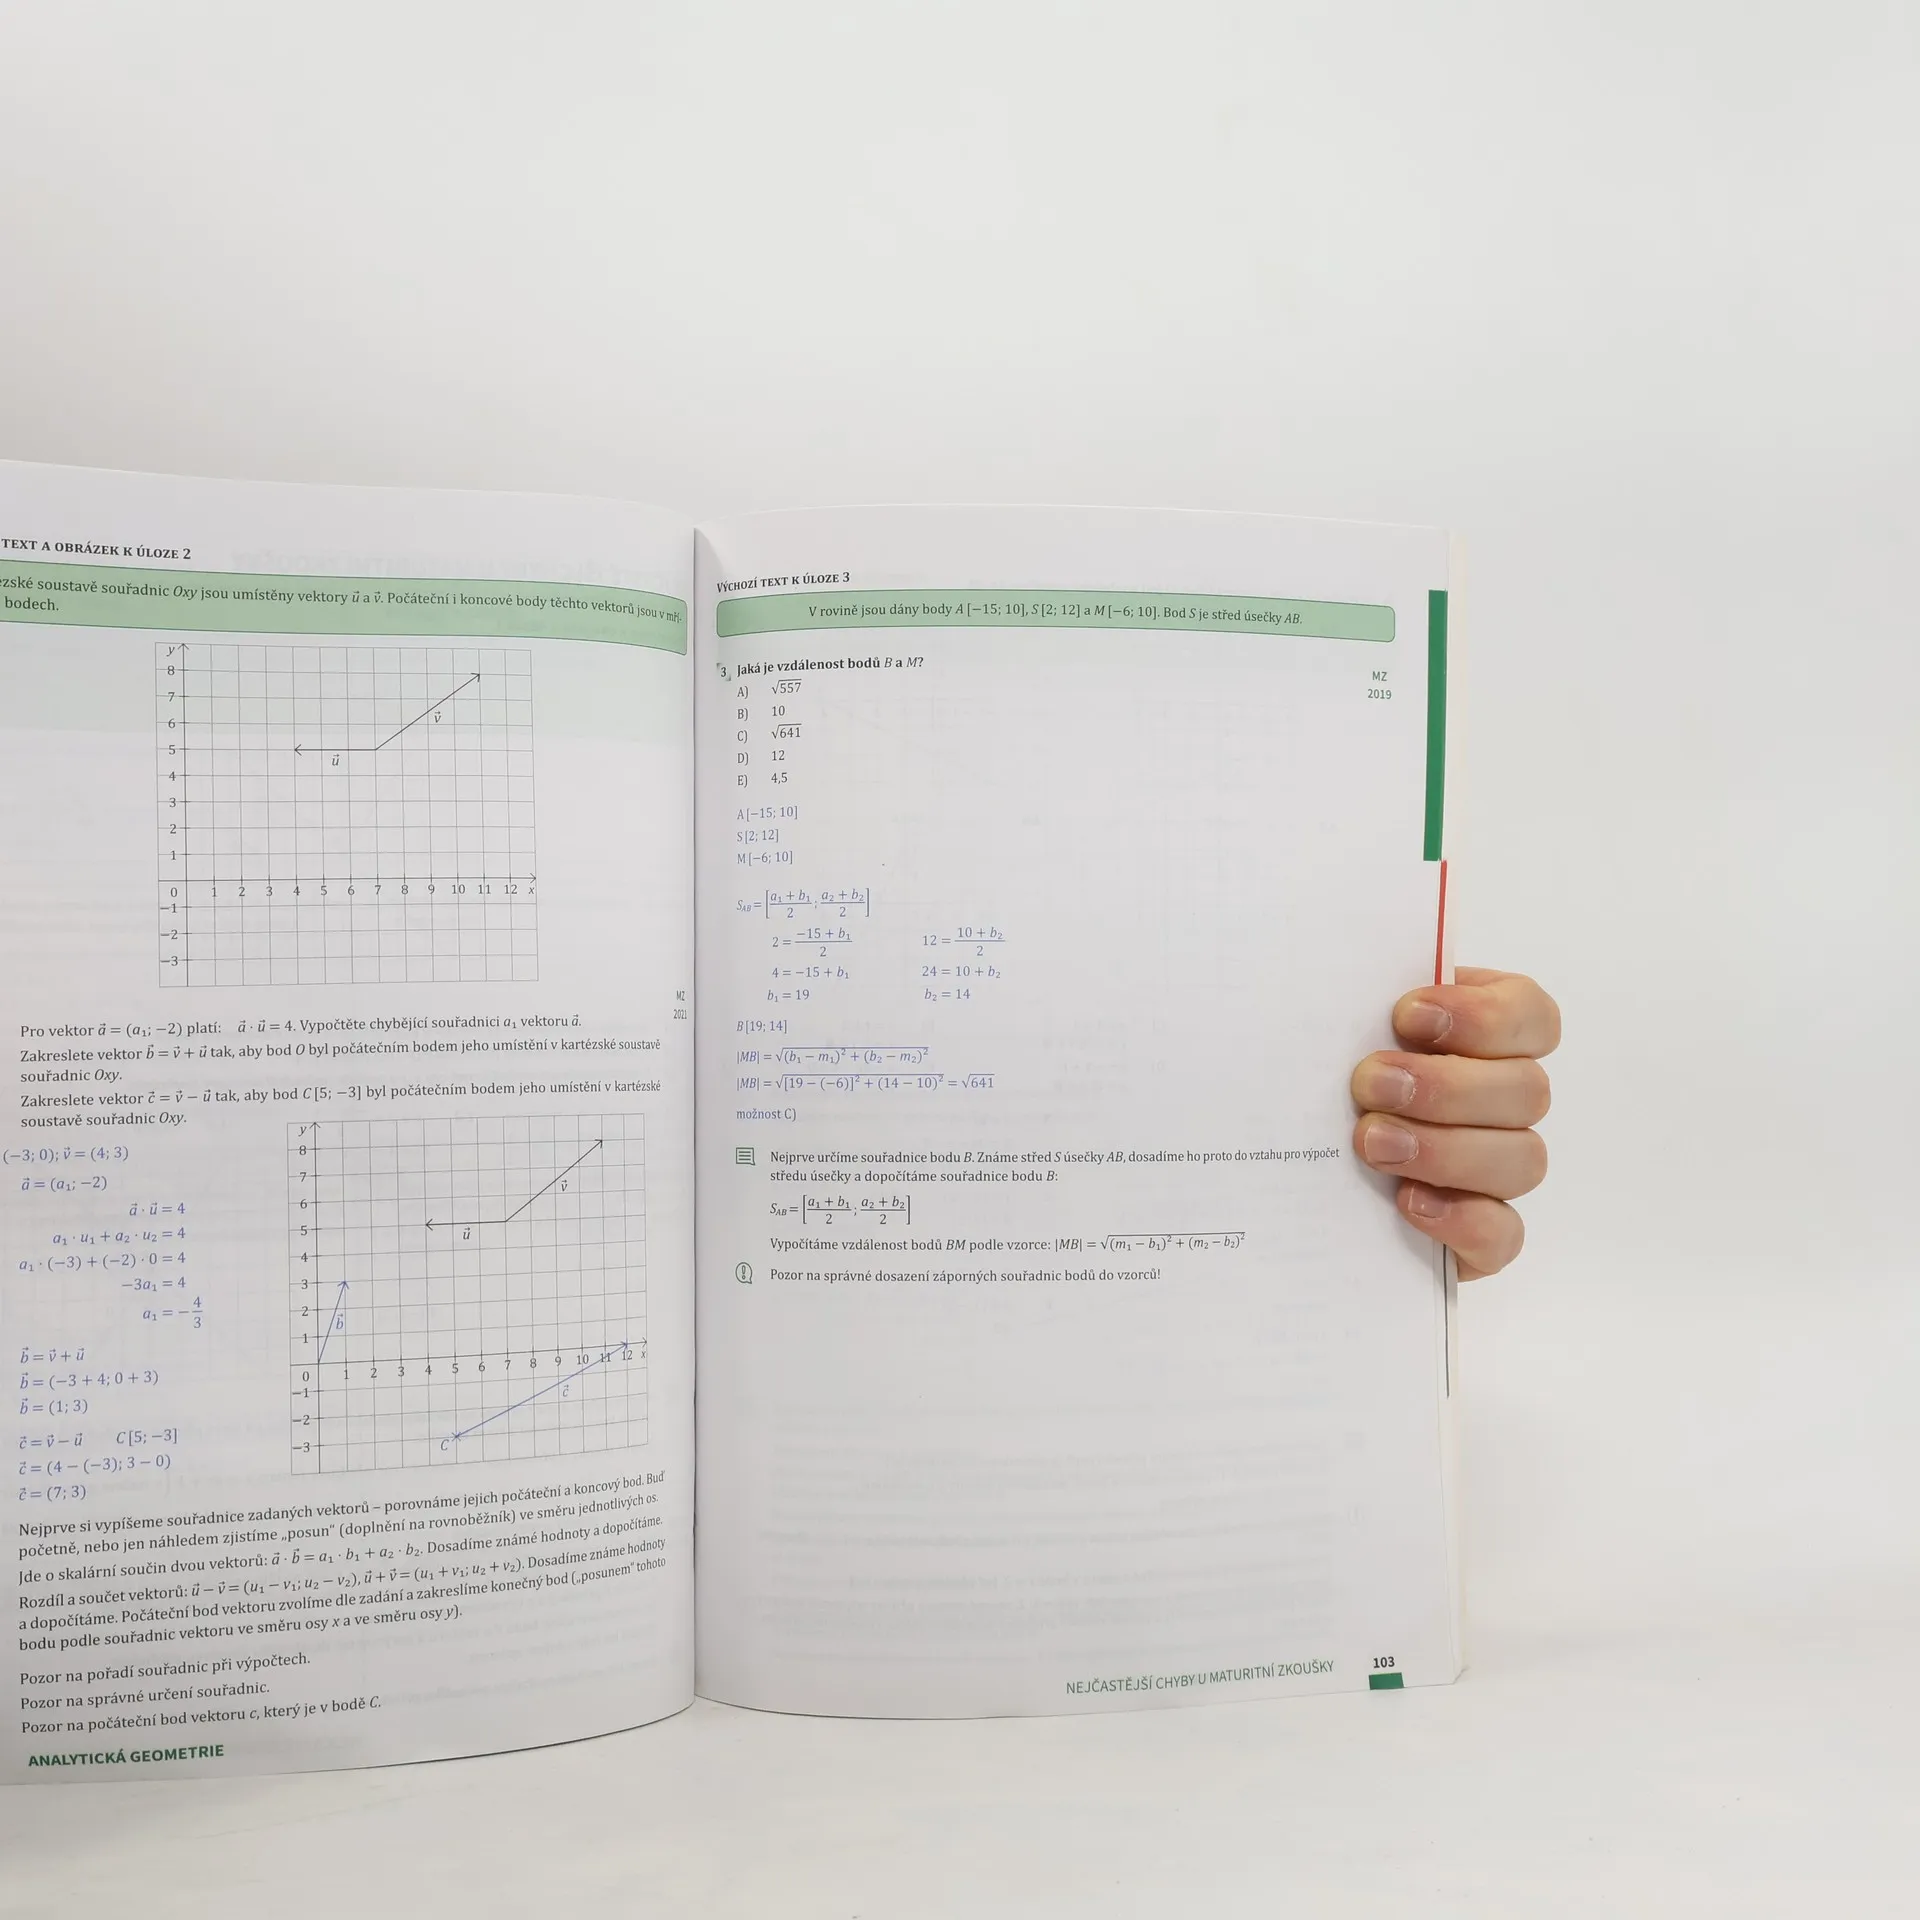 TEXT A OBRÁZEK K ÚLOZE 2
zské soustavě souřadnic Oxy jsou umístěny vektory u⃗ a v⃗. Počáteční i koncové body těchto vektorů jsou v mří-
bodech.
y
8
7
6
5
4
3
2
1
0 1 2 3 4 5 6 7 8 9 10 11 12 x
−1
−2
−3
v⃗
u⃗
MZ
2021
Pro vektor a⃗ = (a₁; −2) platí: a⃗ · u⃗ = 4. Vypočtěte chybějící souřadnici a₁ vektoru a⃗.
Zakreslete vektor b⃗ = v⃗ + u⃗ tak, aby bod O byl počátečním bodem jeho umístění v kartézské soustavě
souřadnic Oxy.
Zakreslete vektor c⃗ = v⃗ − u⃗ tak, aby bod C [5; −3] byl počátečním bodem jeho umístění v kartézské
soustavě souřadnic Oxy.
(−3; 0); v⃗ = (4; 3)
a⃗ = (a₁; −2)
a⃗ · u⃗ = 4
a₁ · u₁ + a₂ · u₂ = 4
a₁ · (−3) + (−2) · 0 = 4
−3a₁ = 4
a₁ = −4/3
b⃗ = v⃗ + u⃗
b⃗ = (−3 + 4; 0 + 3)
b⃗ = (1; 3)
c⃗ = v⃗ − u⃗ C[5; −3]
c⃗ = (4 − (−3); 3 − 0)
c⃗ = (7; 3)
y
8
7
6
5
4
3
2
1
0 1 2 3 4 5 6 7 8 9 10 11 12 x
−1
−2
−3
v⃗
u⃗
b⃗
c⃗
C
Nejprve si vypíšeme souřadnice zadaných vektorů – porovnáme jejich počáteční a koncový bod. Buď
početně, nebo jen náhledem zjistíme „posun“ (doplnění na rovnoběžník) ve směru jednotlivých os.
Jde o skalární součin dvou vektorů: a⃗ · b⃗ = a₁ · b₁ + a₂ · b₂. Dosadíme známé hodnoty a dopočítáme.
Rozdíl a součet vektorů: u⃗ − v⃗ = (u₁ − v₁; u₂ − v₂), u⃗ + v⃗ = (u₁ + v₁; u₂ + v₂). Dosadíme známé hodnoty
a dopočítáme. Počáteční bod vektoru zvolíme dle zadání a zakreslíme konečný bod („posunem“ tohoto
bodu podle souřadnic vektoru ve směru osy x a ve směru osy y).
Pozor na pořadí souřadnic při výpočtech.
Pozor na správné určení souřadnic.
Pozor na počáteční bod vektoru c, který je v bodě C.
ANALYTICKÁ GEOMETRIE
VÝCHOZÍ TEXT K ÚLOZE 3
V rovině jsou dány body A [−15; 10], S [2; 12] a M [−6; 10]. Bod S je střed úsečky AB.
3 Jaká je vzdálenost bodů B a M?
MZ
2019
A) √557
B) 10
C) √641
D) 12
E) 4,5
A[−15; 10]
S[2; 12]
M[−6; 10]
S_AB = [(a₁ + b₁)/2; (a₂ + b₂)/2]
2 = (−15 + b₁)/2 12 = (10 + b₂)/2
4 = −15 + b₁ 24 = 10 + b₂
b₁ = 19 b₂ = 14
B[19; 14]
|MB| = √(b₁ − m₁)² + (b₂ − m₂)²
|MB| = √[19 − (−6)]² + (14 − 10)² = √641
možnost C)
Nejprve určíme souřadnice bodu B. Známe střed S úsečky AB, dosadíme ho proto do vztahu pro výpočet
středu úsečky a dopočítáme souřadnice bodu B:
S_AB = [(a₁ + b₁)/2; (a₂ + b₂)/2]
Vypočítáme vzdálenost bodů BM podle vzorce: |MB| = √(m₁ − b₁)² + (m₂ − b₂)²
Pozor na správné dosazení záporných souřadnic bodů do vzorců!
NEJČASTĚJŠÍ CHYBY U MATURITNÍ ZKOUŠKY 103